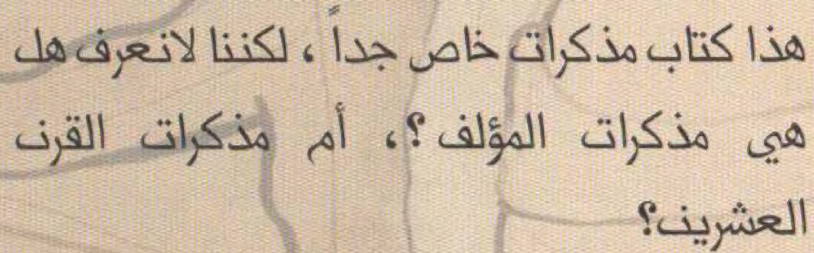 هذا كتاب مذكرات خاص جداً ، لكننا لانعرف هل
هي مذكرات المؤلف ؟، أم مذكرات القرن
العشرين؟